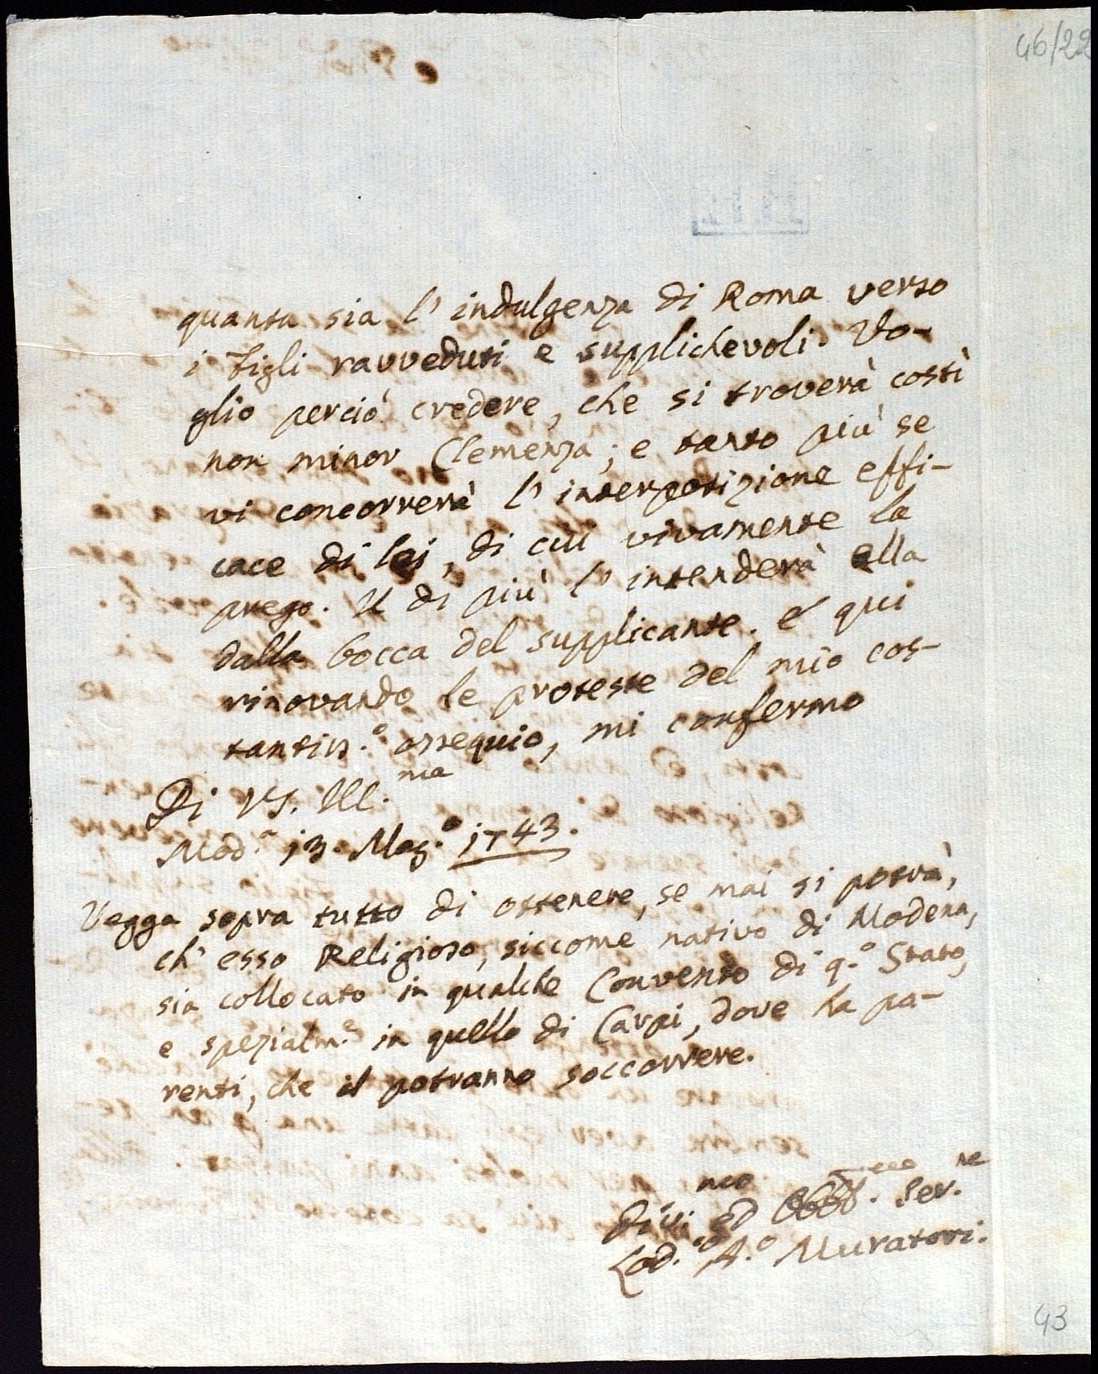 46/22
quanta sia l' indulgenza di Roma verso
i figli ravveduti e supplichevoli. Vo-
glio perciò credere, che si troverà costì
non minor Clemenza; e tanto più se
vi concorrerà l' interposizione effi-
cace di lei, di cui vivamente la
prego. Il di più l' intenderà ella
dalla bocca del supplicante. E qui
rinovando le proteste del mio cos-
tantiss.º ossequio, mi confermo
Di VS. Ill.ma
Mod.ª 13. Mag.º 1743.
Vegga sopra tutto di ottenere, se mai si potrà,
ch' esso Religioso, siccome nativo di Modena,
sia collocato in qualche Convento di q.º Stato,
e spezialm.e in quello di Carpi, dove ha pa-
renti, che il potranno soccorrere.
ed Obbl. Ser.re
Lod.co A.º Muratori.
43